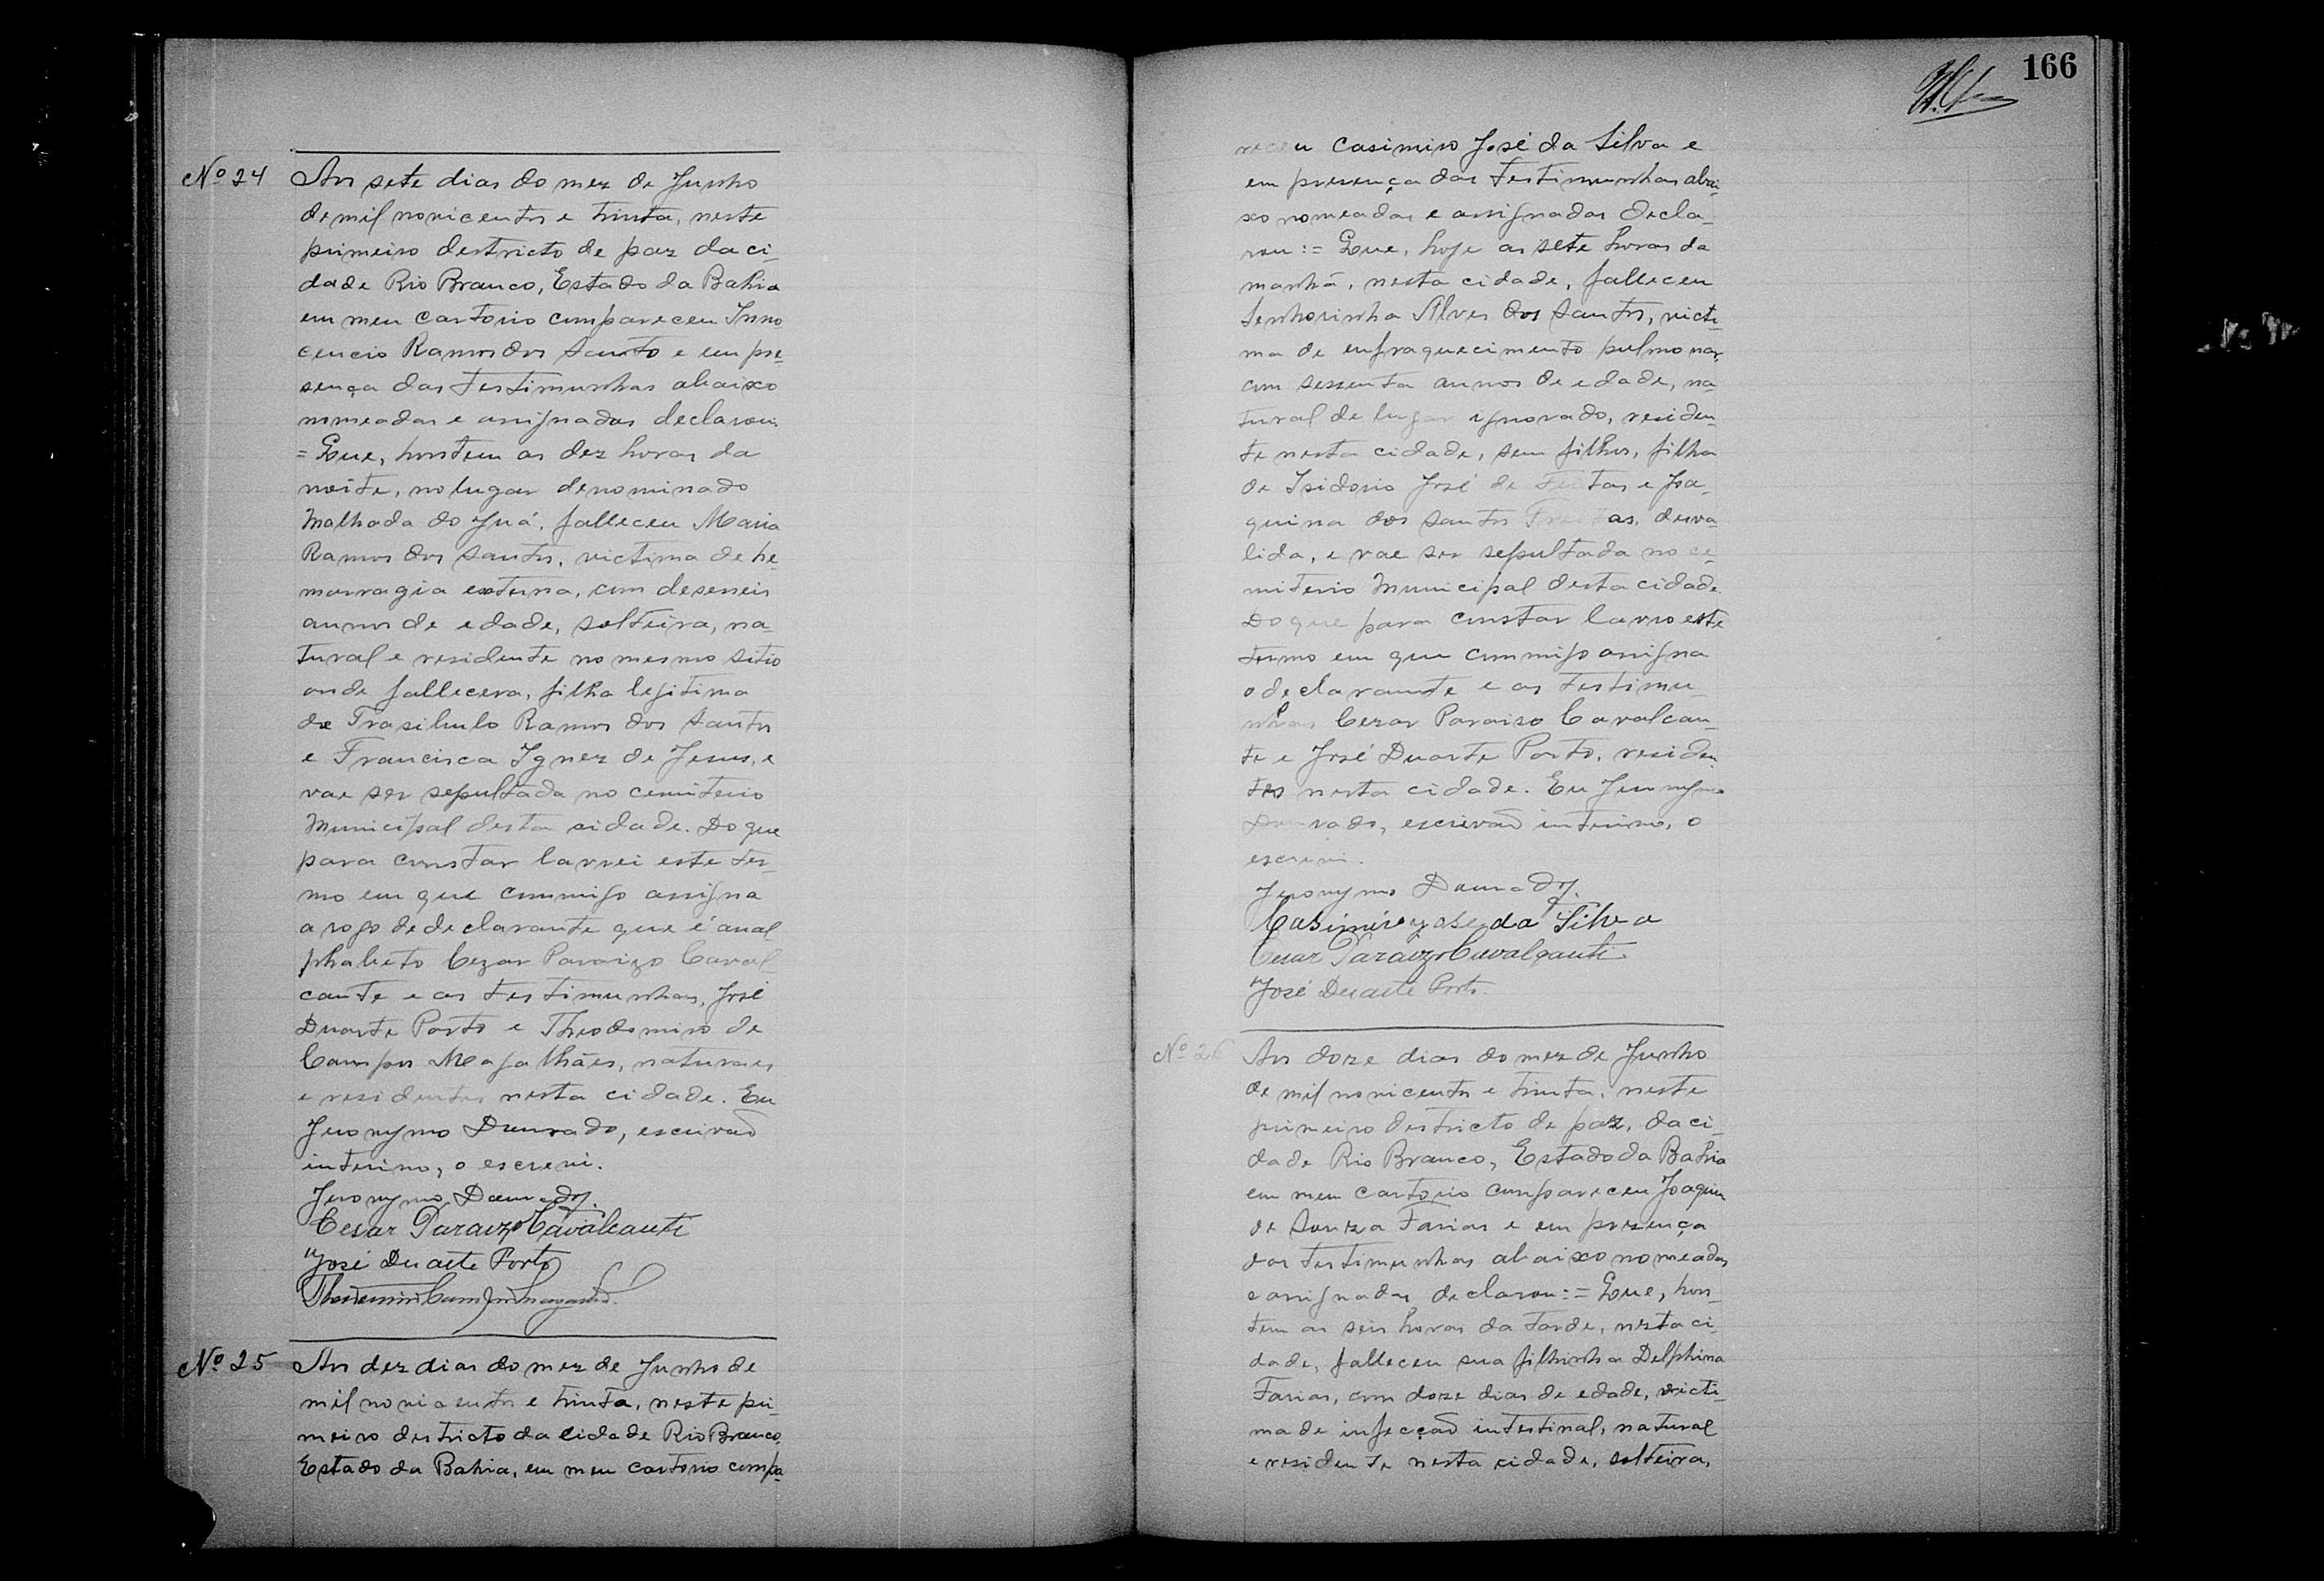 Nº 24 Aos sete dias do mez de Junho
de mil novicentos e trinta, neste
primeiro destricto de paz da ci-
dade Rio Branco, Estado da Bahia
em meu cartorio compareceu Inno-
cencio Ramos dos Santo e em pre-
sença das testimunhas abaixo
nomeadas e assignadas declarou:
= Que, hontem as dez horas da
noite, no lugar denominado
Malhada do Juá, falleceu Maria
Ramos dos Santos, victima de he-
morragia externa, com deseseis
annos de edade, solteira, na-
tural e residente no mesmo sitio
onde fallecera, filha legitima
de Trasibulo Ramos dos Santos
e Francisca Ignez de Jesus, e
vae ser sepultada no cemiterio
Municipal desta cidade. Do que
para constar lavrei este ter-
mo em que commigo assigna
a rogo de declarante que é anal-
phabeto Cezar Paraizo Caval-
cante e as testimunhas, José
Duarte Porto e Theodomiro de
Campos Magalhães, naturaes
e residentes nesta cidade. Eu
Jeronymo Dourado, escrivão
interino, o escrevi.
Jeronymo Dourado
Cesar Paraizo Cavalcanti
José Duarte Porto
Nº 25 Aos dez dias do mez de Junho de
mil novicentos e trinta, neste pri-
meiro destricto da cidade Rio Branco,
Estado da Bahia, em meu cartorio compa-
166
receu Casimiro José da Silva e
em presença das testimunhas abai-
xo nomeadas e assignadas decla-
rou:= Que, hoje as sete horas da
manhã, nesta cidade, falleceu
Senhorinha Alves dos Santos, victi-
ma de enfraquecimento pulmonar,
com sessenta annos de edade, na-
tural de lugar ignorado, residen-
te nesta cidade, sem filhos, filha
de Isidorio José de Freitas e Joa-
quina dos Santos Freitas, desva-
lida, e vae ser sepultada no ce-
miterio Municipal desta cidade.
Do que para constar lavro este
termo em que commigo assigna
o declarante e as testimu-
nhas Cezar Paraiso Cavalcan-
te e José Duarte Porto, residen-
tes nesta cidade. Eu Jeronymo
Dourado, escrivão interino, o
escrevi.
Jeronymo Dourado
Casimiro Jose da Silva
Cesar Paraizo Cavalcanti
José Duarte Porto
Nº 26 Aos doze dias do mez de Junho
de mil novicentos e trinta, neste
primeiro destricto de paz, da ci-
dade Rio Branco, Estado da Bahia
em meu cartorio compareceu Joaquim
de Souza Farias e em presença
das testimunhas abaixo nomeadas
e assignadas declarou:= Que, hon-
tem as seis horas da tarde, nesta ci-
dade, falleceu sua filhinha Delphina
Farias, com doze dias de edade, victi-
ma de infecção intestinal, natural
e residente nesta cidade, solteira,